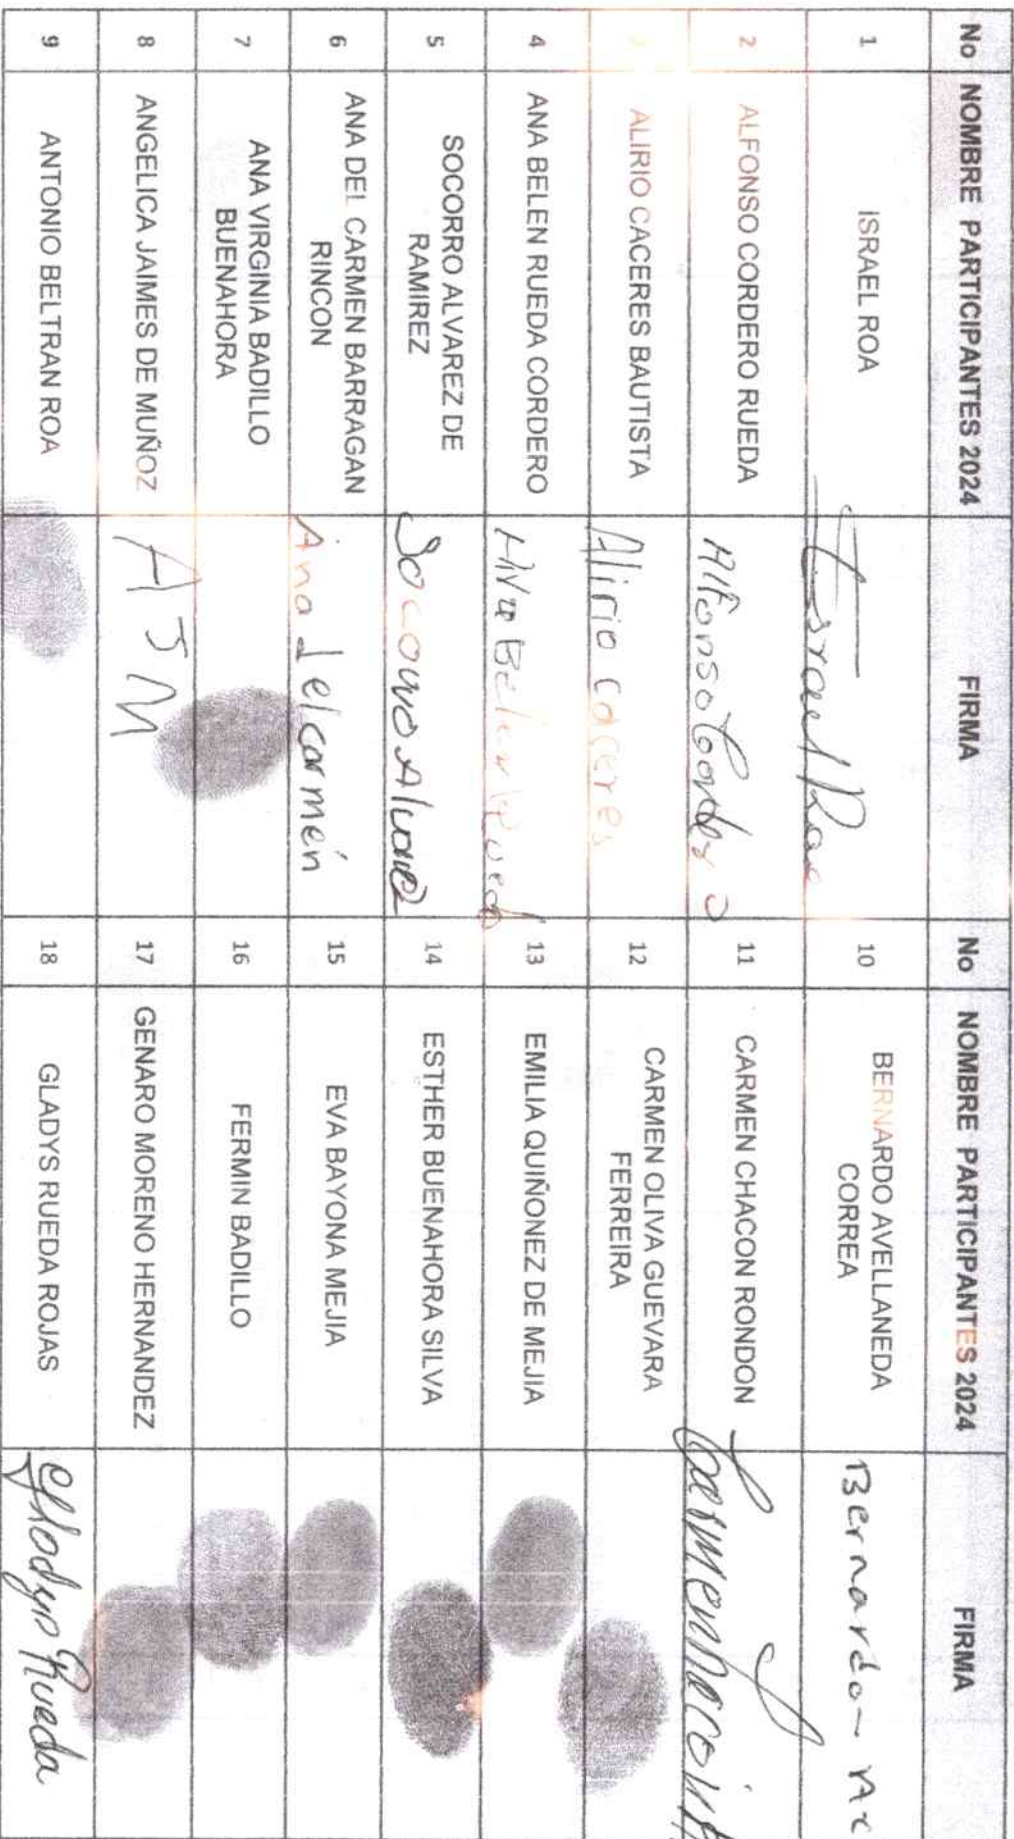 No NOMBRE PARTICIPANTES 2024 FIRMA No NOMBRE PARTICIPANTES 2024 FIRMA
1 ISRAEL ROA Israel Roa 10 BERNARDO AVELLANEDA CORREA Bernardo
2 ALFONSO CORDERO RUEDA Alfonso 11 CARMEN CHACON RONDON Carmen
3 ALIRIO CACERES BAUTISTA Alirio caceres 12 CARMEN OLIVA GUEVARA FERREIRA
4 ANA BELEN RUEDA CORDERO Ana Belen Rueda 13 EMILIA QUIÑONEZ DE MEJIA
5 SOCORRO ALVAREZ DE RAMIREZ Socorro Alvarez 14 ESTHER BUENAHORA SILVA
6 ANA DEL CARMEN BARRAGAN RINCON Ana del carmen 15 EVA BAYONA MEJIA
7 ANA VIRGINIA BADILLO BUENAHORA 16 FERMIN BADILLO
8 ANGELICA JAIMES DE MUÑOZ A J M 17 GENARO MORENO HERNANDEZ
9 ANTONIO BELTRAN ROA 18 GLADYS RUEDA ROJAS Gladys Rueda